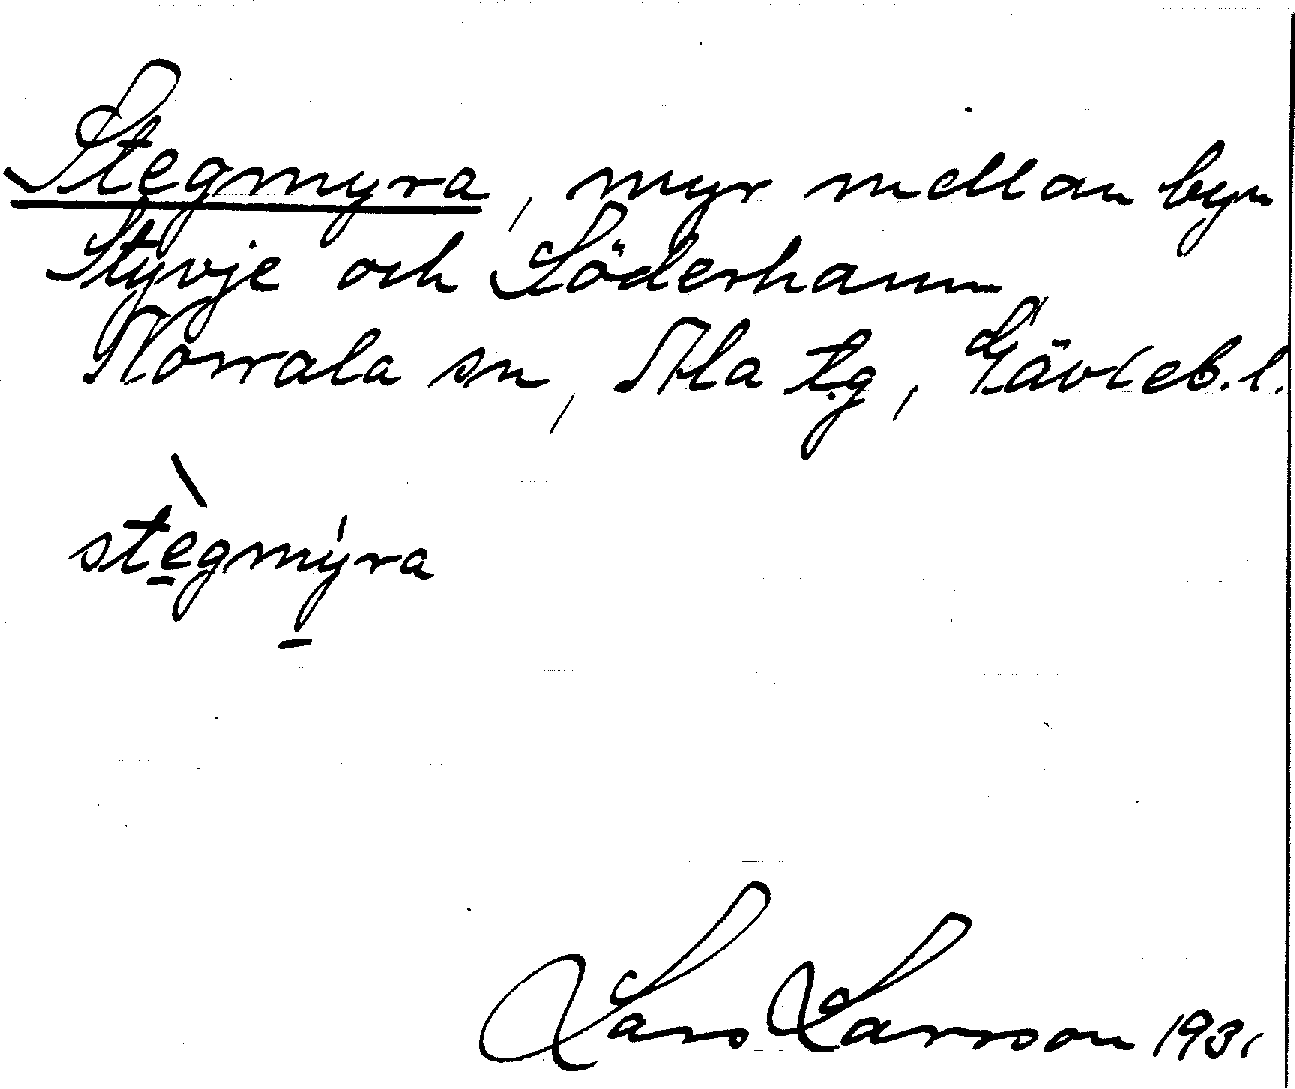 Stegmyra, myr mellan byn
Styvje och Söderhamn
Norrala sn, Ala t.g, Gävleb.l.
stègmýra
Lars Larsson 1931